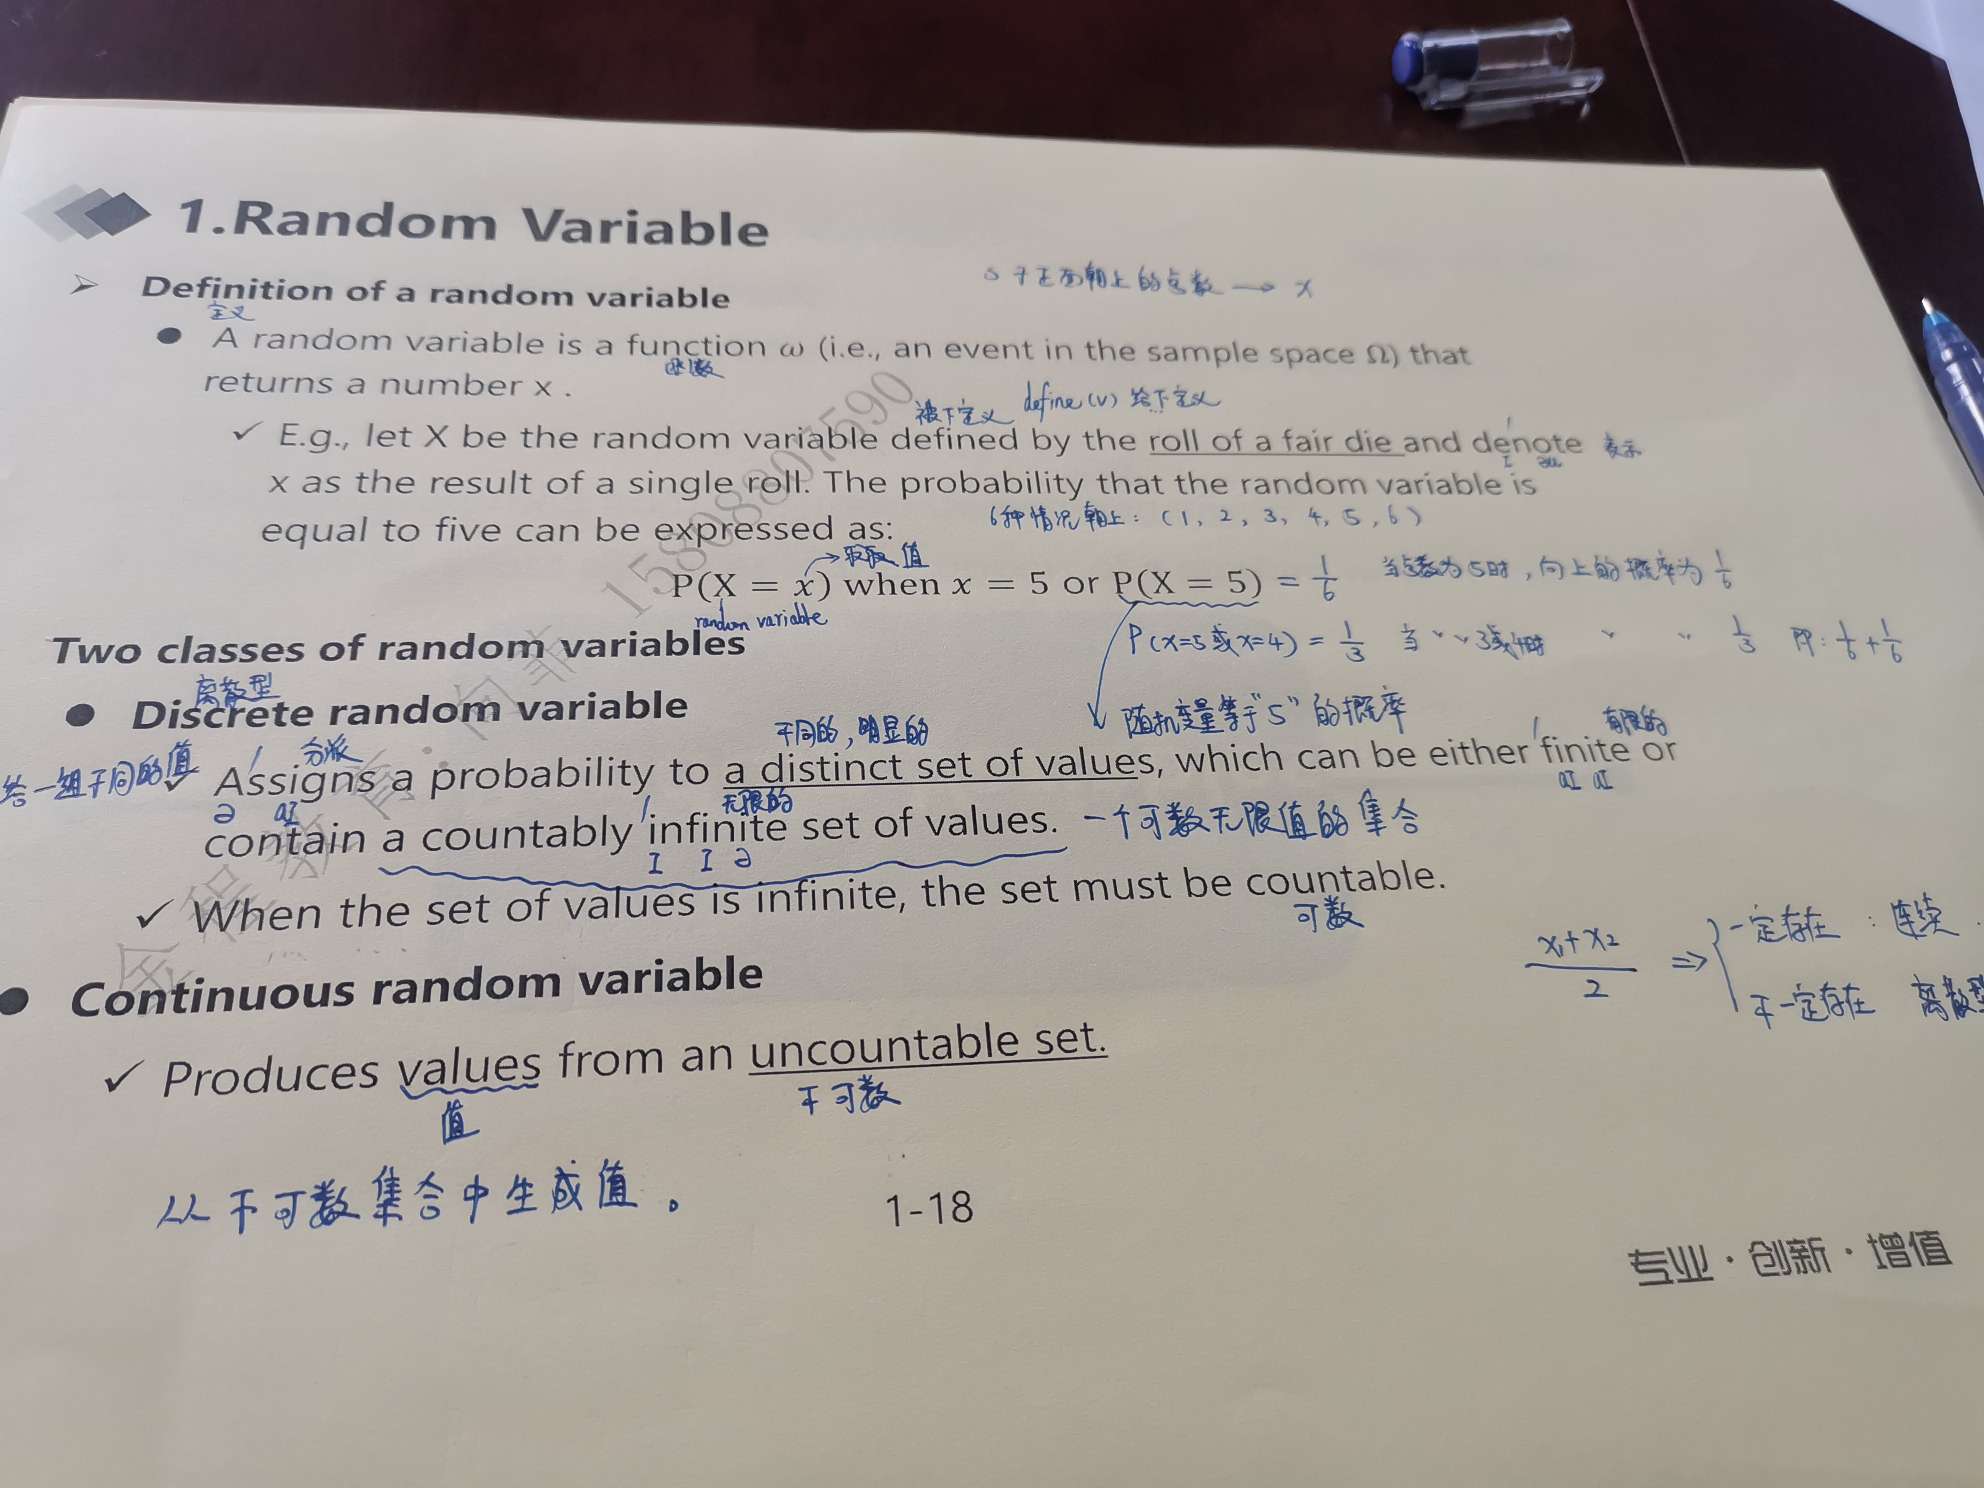 1.Random Variable
➢ Definition of a random variable
子正面朝上的点数 → x
定义
● A random variable is a function ω (i.e., an event in the sample space Ω) that
函数
returns a number x .
被下定义 define (v) 给下定义
✓ E.g., let X be the random variable defined by the roll of a fair die and denote 表示
x as the result of a single roll. The probability that the random variable is
equal to five can be expressed as: 6种情况朝上: (1, 2, 3, 4, 5, 6)
→ 取值
P(X = x) when x = 5 or P(X = 5) = 1/6 当点数为5时, 向上的概率为 1/6
random variable
P(x=5或x=4) = 1/3 当 〃 〃 3或4时 〃 〃 1/3 即: 1/6 + 1/6
Two classes of random variables
离散型
● Discrete random variable
随机变量等于"5"的概率
分派 不同的, 明显的 有限的
给一组不同的值 ✓ Assigns a probability to a distinct set of values, which can be either finite or
ə aI 无限的 aI aI
contain a countably infinite set of values. 一个可数无限值的集合
I I ə
✓ When the set of values is infinite, the set must be countable.
可数
(x₁+x₂)/2 ⇒ { 一定存在 : 连续
不一定存在 离散型
● Continuous random variable
✓ Produces values from an uncountable set.
值 不可数
从不可数集合中生成值。
1-18
专业·创新·增值
15808807590